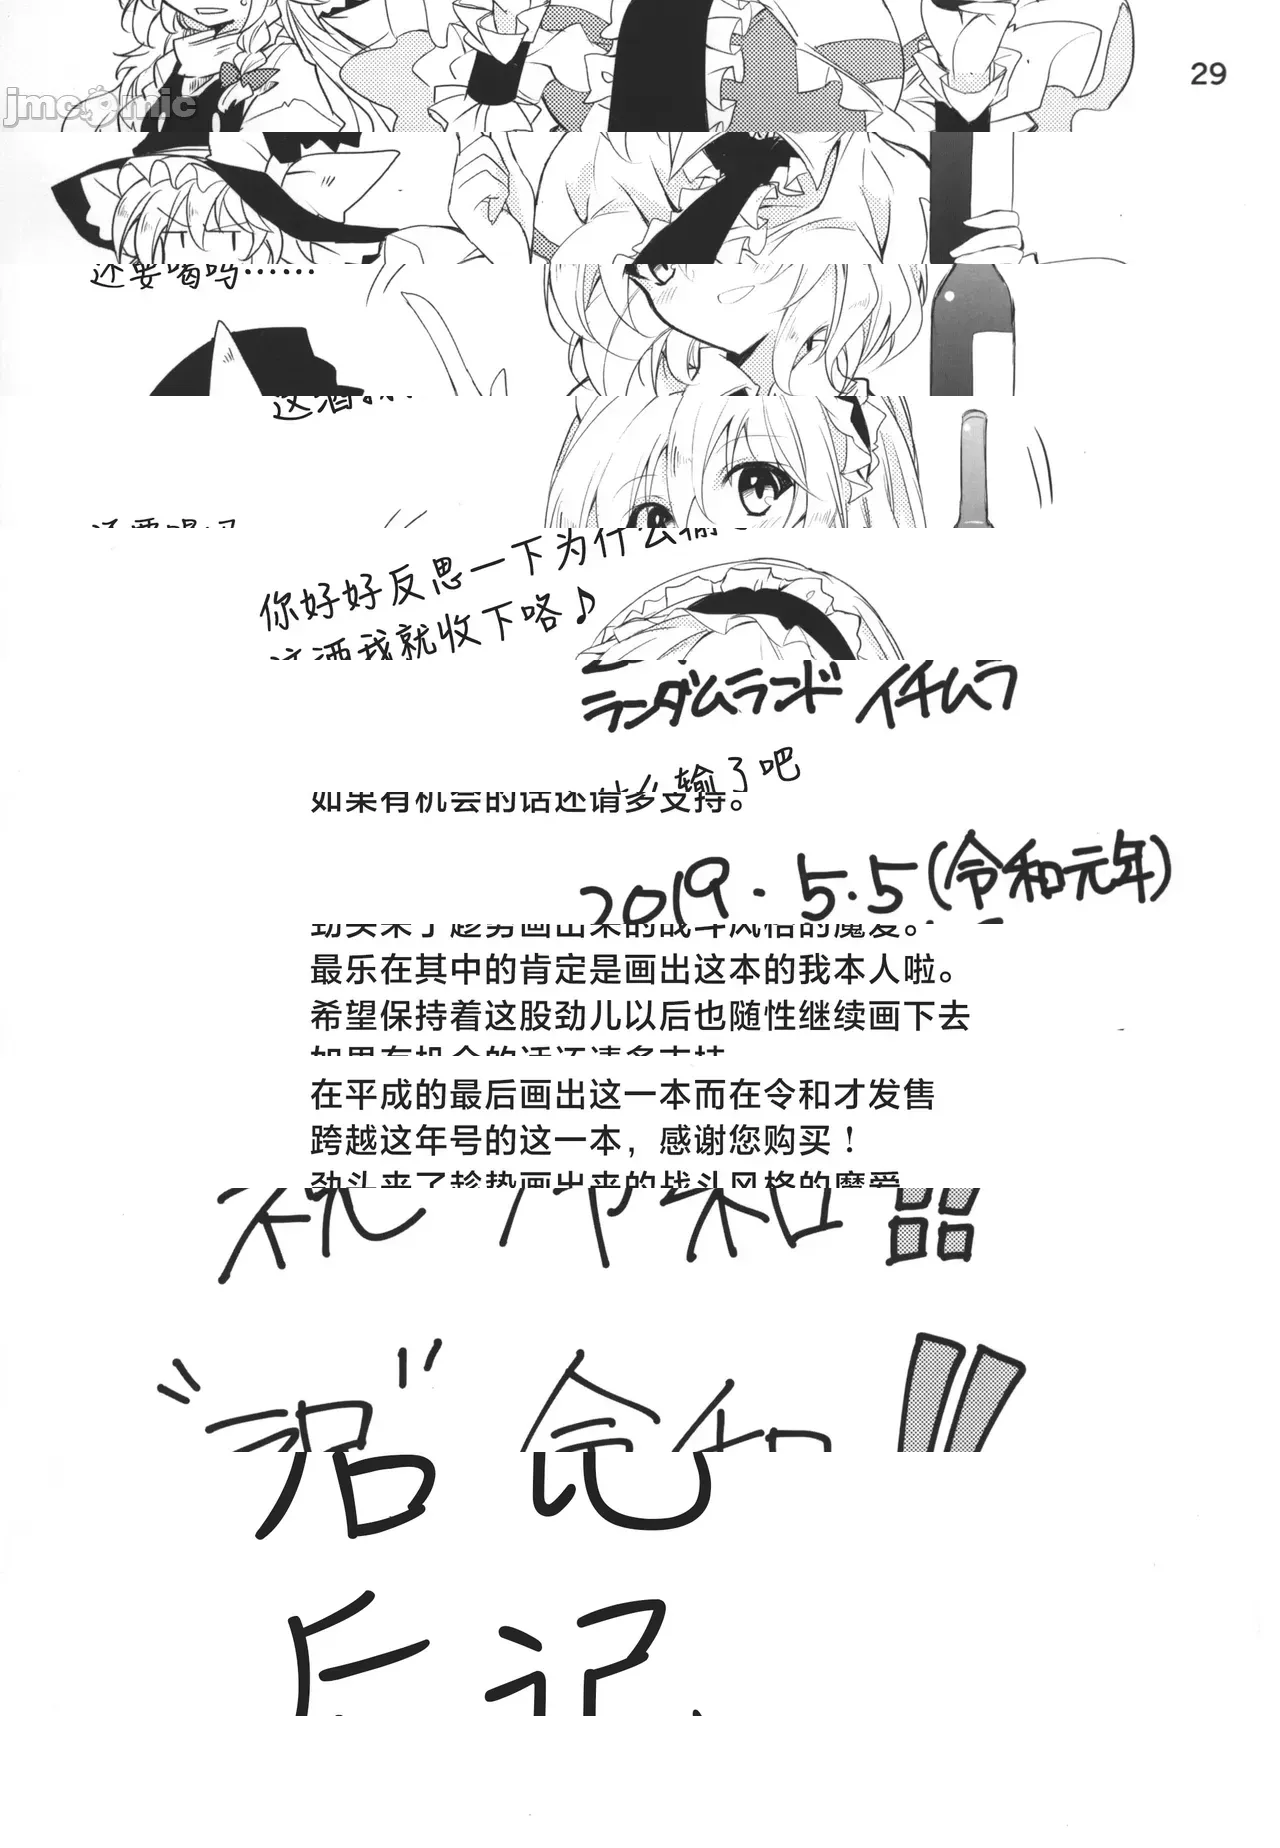 29
jmcomic
还要喝吗……
你好好反思一下为什么输
这酒我就收下咯♪
ランダムランド イチムラ
什么输了吧
如果有机会的话还请多支持。
2019.5.5(令和元年)
劲头来了趁势画出来的战斗风格的魔爱。
最乐在其中的肯定是画出这本的我本人啦。
希望保持着这股劲儿以后也随性继续画下去
如果有机会的话还请多支持
在平成的最后画出这一本而在令和才发售
跨越这年号的这一本，感谢您购买！
劲头来了趁势画出来的战斗风格的魔爱
后记